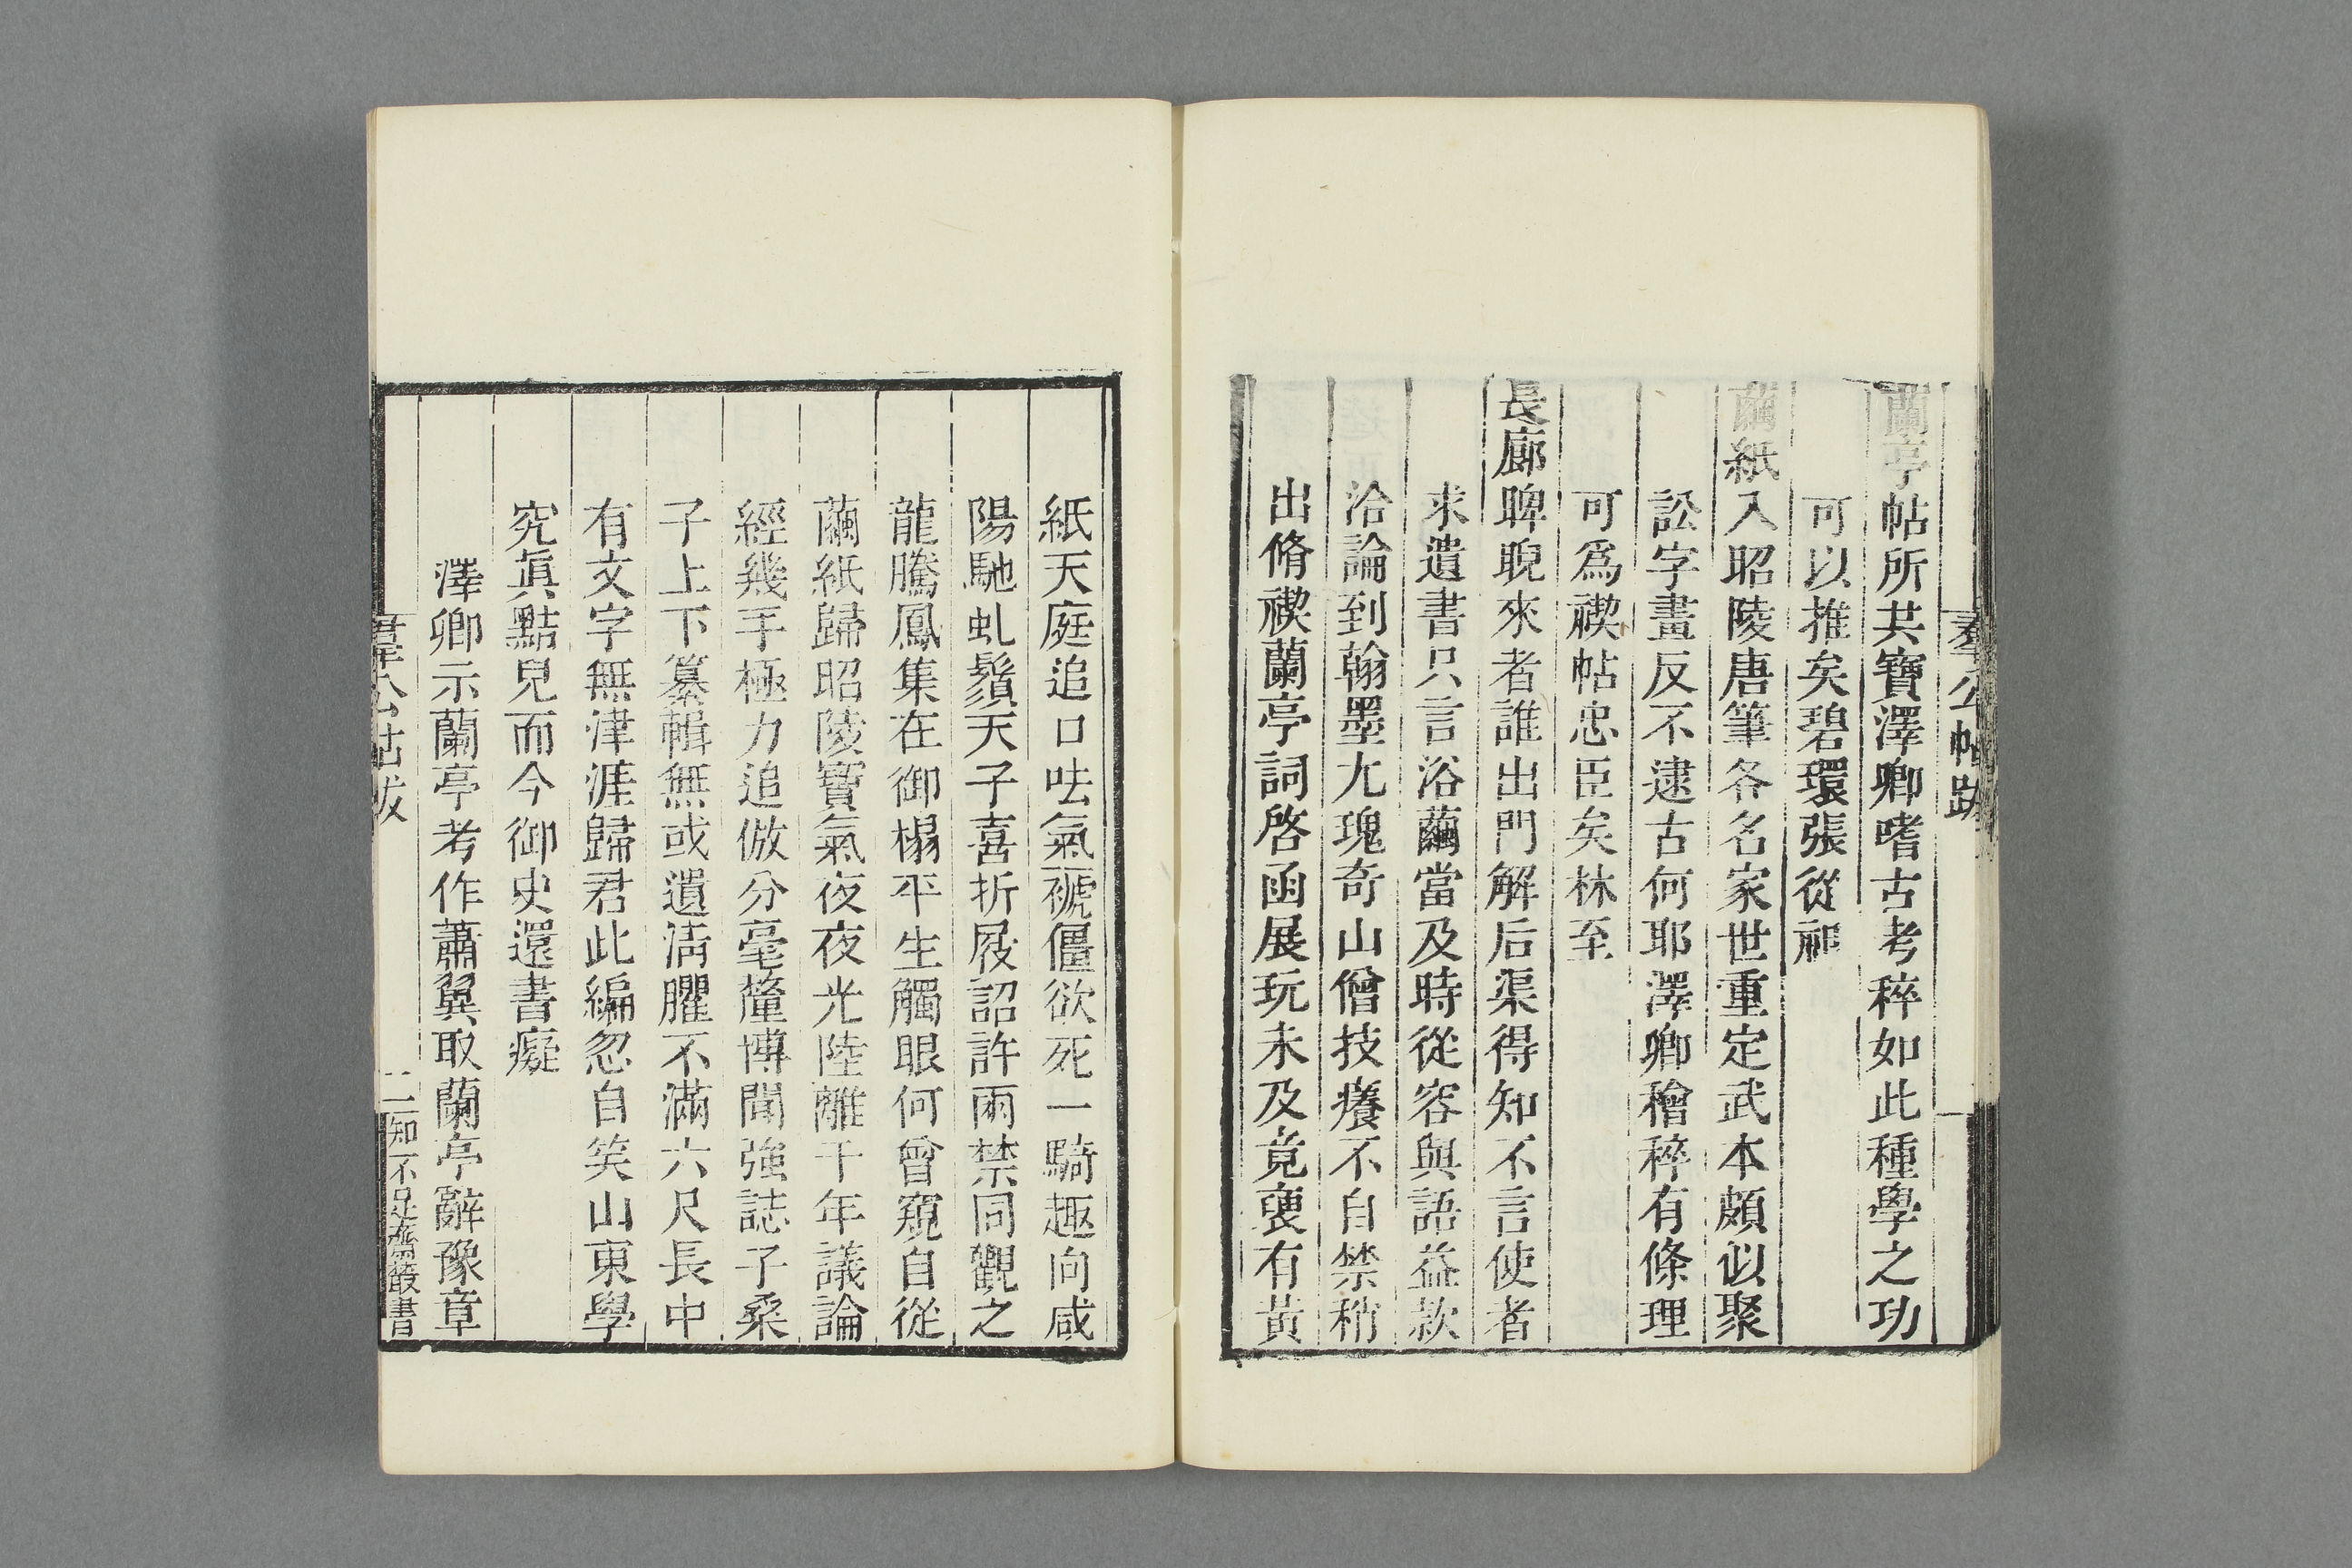 羣公帖跋
蘭亭帖所共寶澤卿嗜古考稡如此種學之功
可以推矣碧環張從祖
繭紙入昭陵唐筆各名家世重定武本頗似聚
訟字畫反不逮古何耶澤卿穭稡有條理
可爲禊帖忠臣矣林至
長廊睥睨來者誰出門解后渠得知不言使者
求遺書只言浴繭當及時從容與語益款
洽論到翰墨尤瑰奇山僧技癢不自禁稍
出脩禊蘭亭詞啓函展玩未及竟蔓有黃
紙天庭追口呿氣褫僵欲死一騎趣向咸
陽馳虬鬚天子喜折屐詔許兩禁同觀之
龍騰鳳集在御榻平生觸眼何曾窺自從
繭紙歸昭陵寶氣夜夜光陸離千年議論
經幾手極力追倣分毫釐博聞強誌子桑
子上下纂輯無或遺淸臞不滿六尺長中
有文字無津涯歸君此編忽自笑山東學
究眞黠兒而今御史還書癡
澤卿示蘭亭考作蕭翼取蘭亭辭豫章
羣公帖跋
二 知不足齋叢書